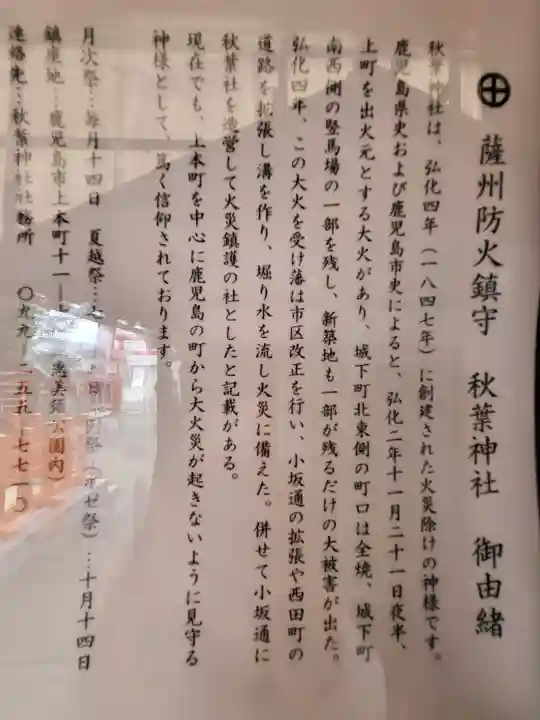 薩州防火鎮守 秋葉神社 御由緒
秋葉神社は、弘化四年(一八四七年)に創建された火災除けの神様です。
鹿児島県史および鹿児島市史によると、弘化二年十一月二十一日夜半、
上町を出火元とする大火があり、城下町北東側の町口は全焼、城下町
南西側の竪馬場の一部を残し、新築地も一部が残るだけの大被害が出た。
弘化四年、この大火を受け藩は市区改正を行い、小坂通の拡張や西田町の
道路を拡張し溝を作り、堀り水を流し火災に備えた。併せて小坂通に
秋葉社を造営して火災鎮護の社としたと記載がある。
現在でも、上本町を中心に鹿児島の町から大火災が起きないように見守る
神様として、篤く信仰されております。
月次祭…毎月十四日 夏越祭… 祭(ホゼ祭)…十月十四日
鎮座地…鹿児島市上本町十一 恵美須公園内)
連絡先…秋葉神社社務所 〇九九 二五五 七七一〇